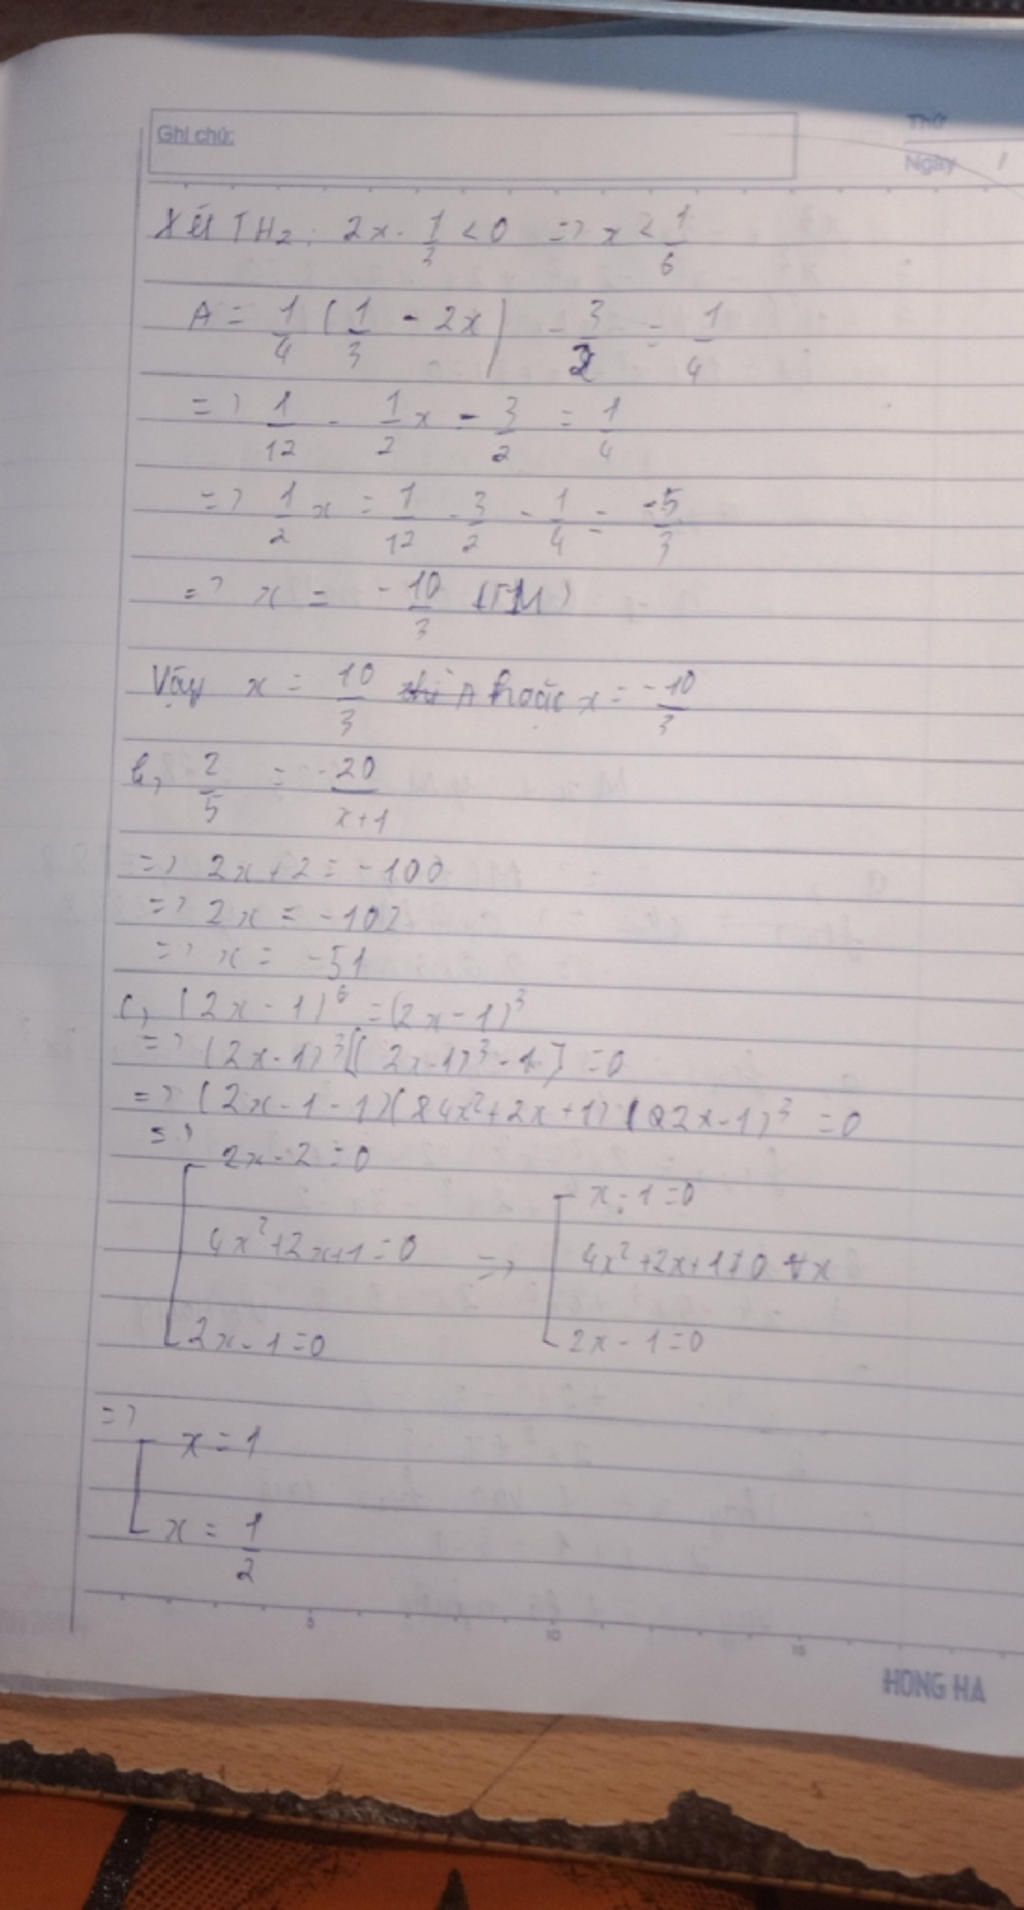 Ghi chú:
Thứ
Ngày
Xét TH2: 2x - 1/3 < 0 => x < 1/6
A = 1/4 (1/3 - 2x) - 3/2 = 1/4
=> 1/12 - 1/2 x - 3/2 = 1/4
=> 1/2 x = 1/12 - 3/2 - 1/4 = -5/3
=> x = -10/3 (TM)
Vậy x = 10/3 hoặc x = -10/3
b, 2/5 = -20/x+1
=> 2x + 2 = -100
=> 2x = -102
=> x = -51
c, (2x - 1)⁶ = (2x - 1)³
=> (2x - 1)³[(2x - 1)³ - 1] = 0
=> (2x - 1 - 1)(4x² + 2x + 1)(2x - 1)³ = 0
=>
[ 2x - 2 = 0
4x² + 2x + 1 = 0
2x - 1 = 0
=> [ x - 1 = 0
4x² + 2x + 1 ≠ 0 ∀x
2x - 1 = 0
=>
[ x = 1
x = 1/2
5 10 15
HONG HA